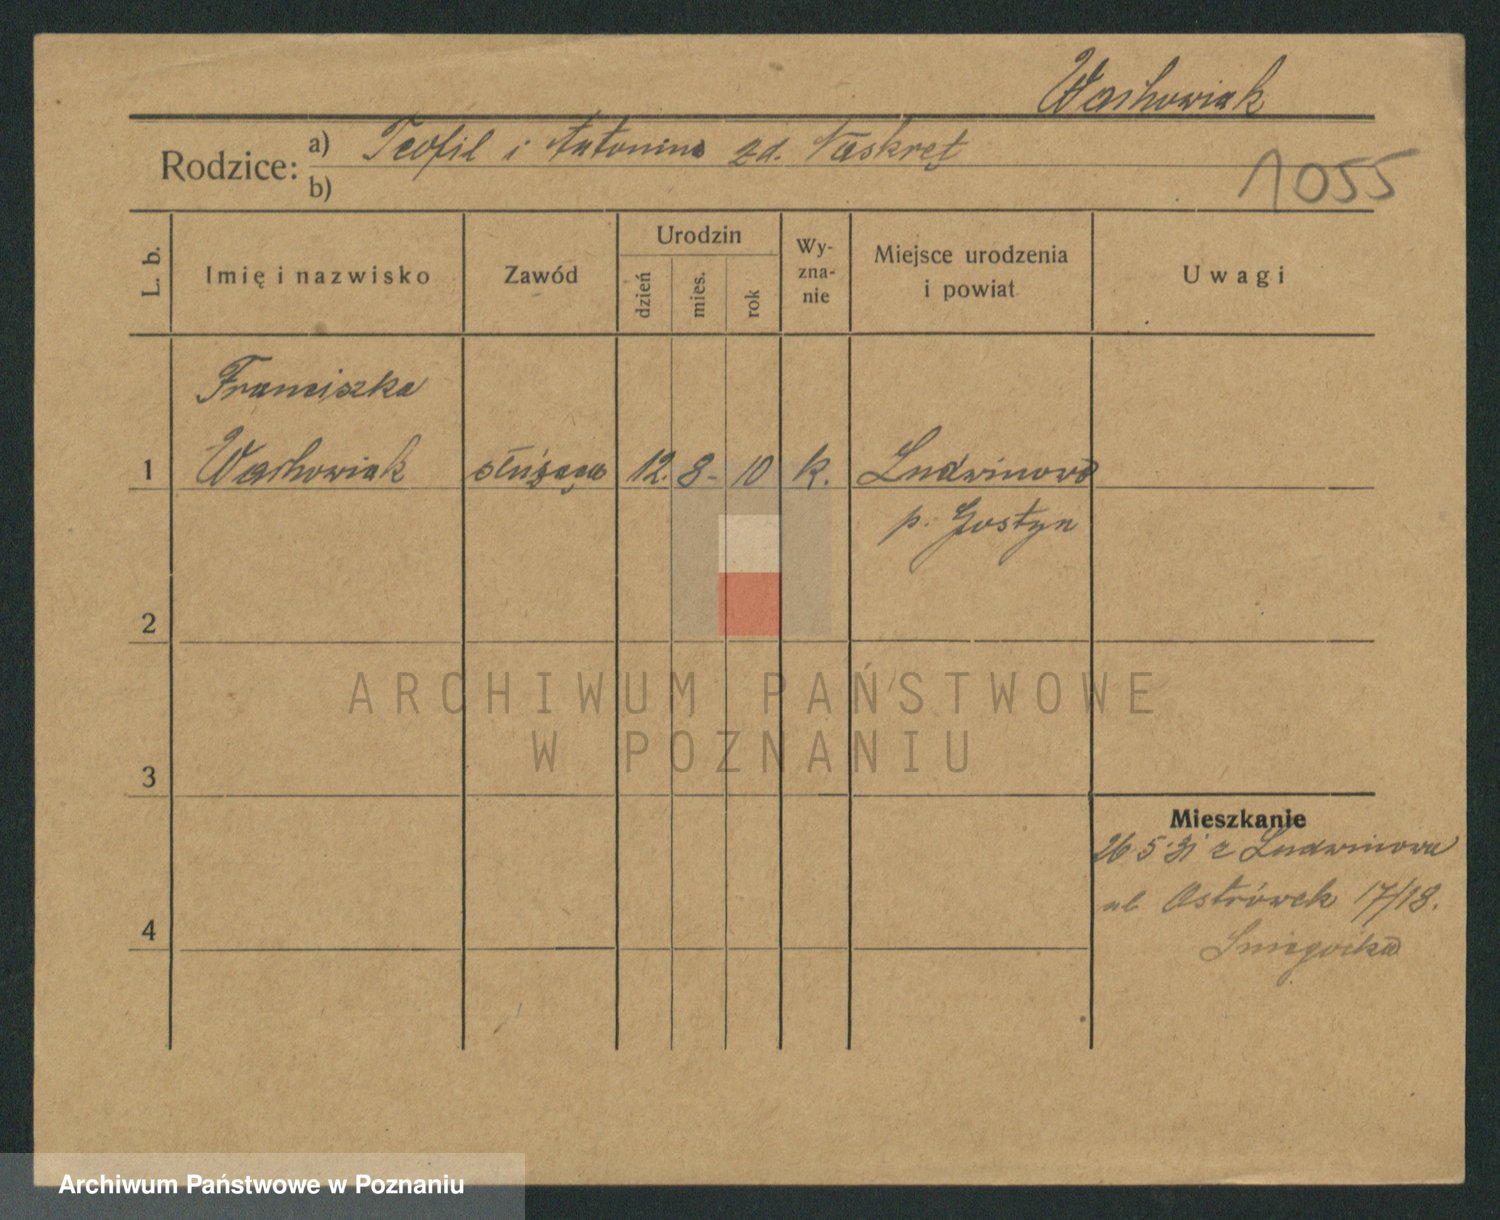 Wachowiak
Rodzice: a) Teofil i Antonina zd. Naskręt
b)
1055
L. b. Imię i nazwisko Zawód Urodzin dzień mies. rok Wy-zna-nie Miejsce urodzenia i powiat Uwagi
Franciszka
1 Wachowiak służąca 12. 8- 10 k. Ludwinowo
p. Gostyn
2
ARCHIWUM PAŃSTWOWE
W POZNANIU
3
Mieszkanie
26 5·31 z Ludwinowa
ul. Ostrówek 17/18.
4
Archiwum Państwowe w Poznaniu